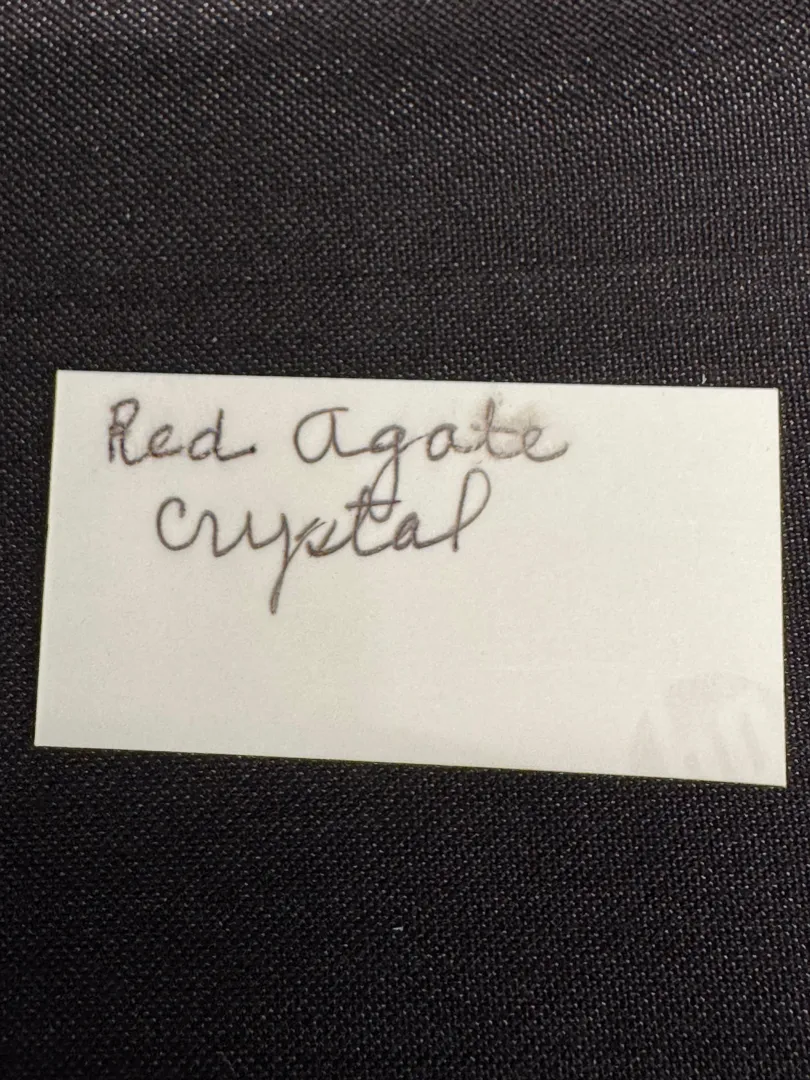 Red Agate
Crystal